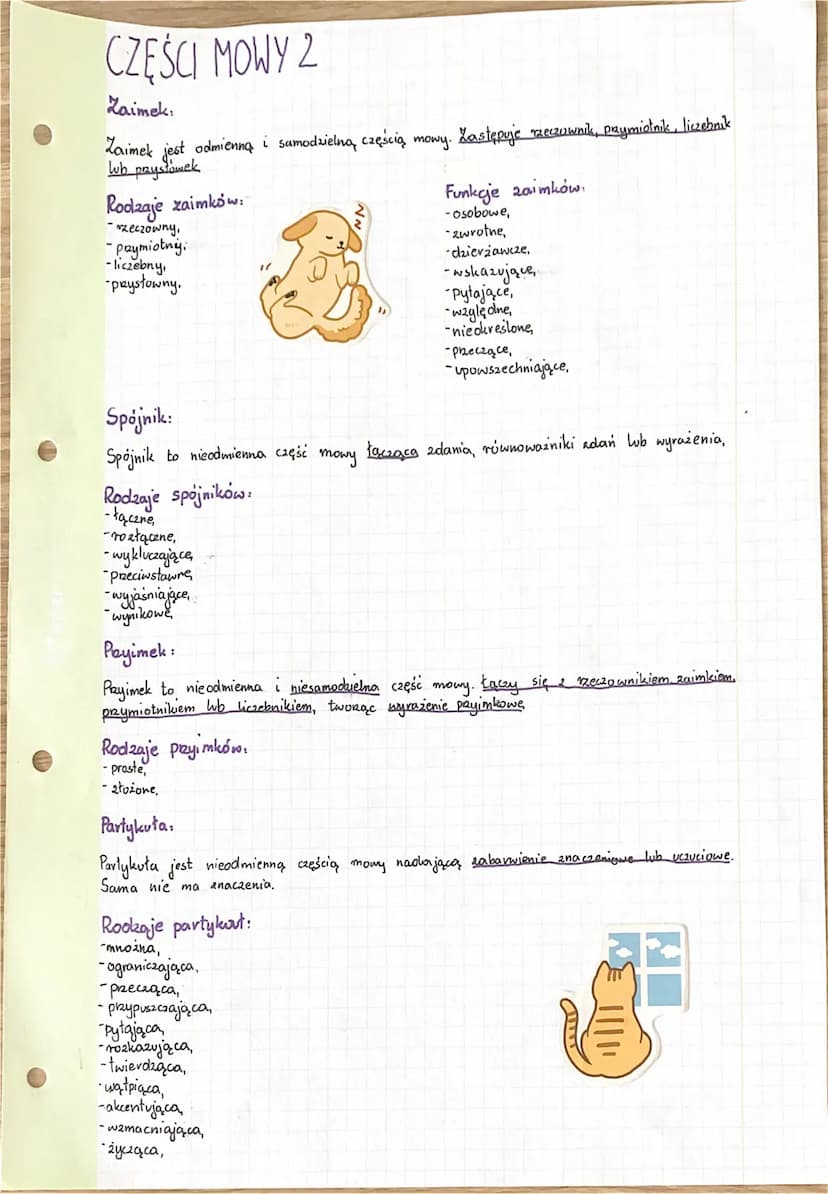 CZĘŚCI MOWY 2
Zaimek:
Zaimek jest odmienną i samodzielną częścią mowy. Zastępuje rzeczownik, przymiotnik, liczebnik
lub przysłówek
Rodzaje zaimków:
- rzeczowny,
- przymiotny,
- liczebny,
- przysłowny.
z
z
Funkcje zaimków:
- osobowe,
- zwrotne,
- dzierżawcze,
- wskazujące,
- pytające,
- względne,
- nieokreślone,
- przeczące,
- upowszechniające,
Spójnik:
Spójnik to nieodmienna część mowy łącząca zdania, równoważniki zdań lub wyrażenia,
Rodzaje spójników:
- łączne,
- rozłączne,
- wykluczające,
- przeciwstawne,
- wyjaśniające,
- wynikowe,
Przyimek:
Przyimek to nieodmienna i niesamodzielna część mowy. Łączy się z rzeczownikiem, zaimkiem,
przymiotnikiem lub liczebnikiem, tworząc wyrażenie przyimkowe,
Rodzaje przyimków:
- proste,
- złożone,
Partykuła:
Partykuła jest nieodmienną częścią mowy nadającą zabarwienie znaczeniowe lub uczuciowe.
Sama nie ma znaczenia.
Rodzaje partykuł:
- mnożna,
- ograniczająca,
- przecząca,
- przypuszczająca,
- pytająca,
- rozkazująca,
- twierdząca,
- wątpiąca,
- akcentująca,
- wzmacniająca,
- życząca,